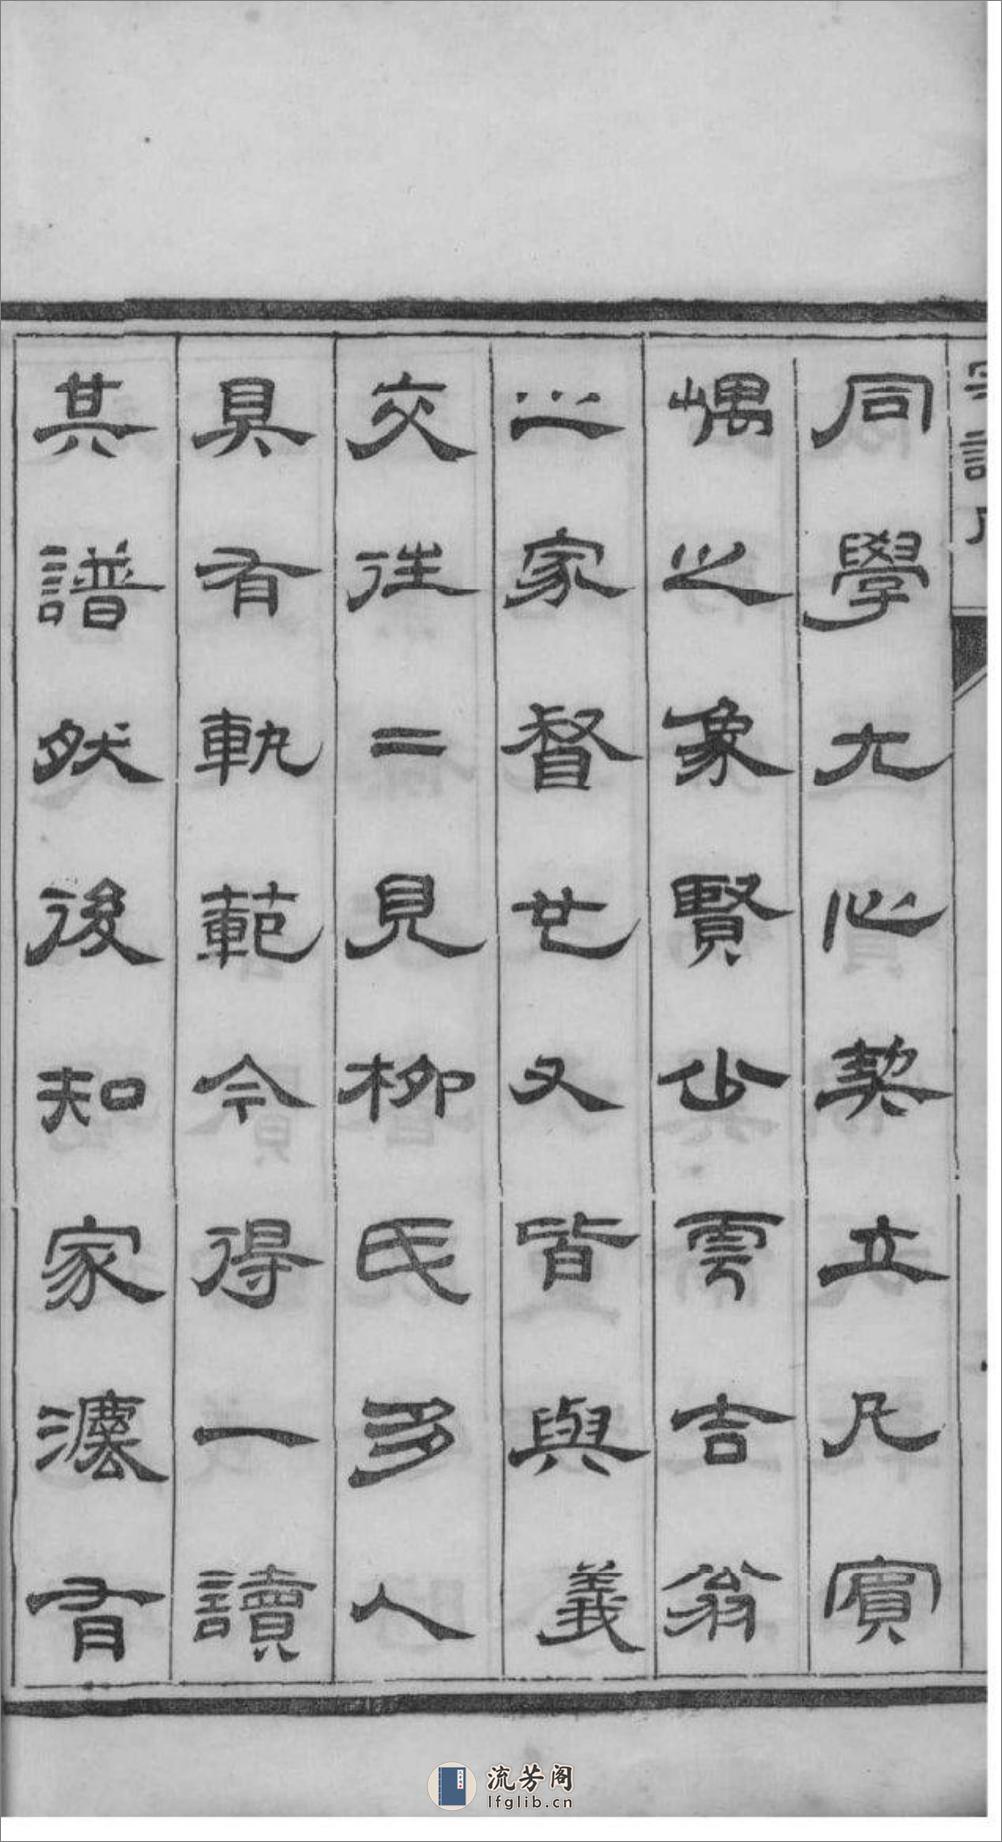 同學尤心契立凡賓
嵎之象賢少雲吉翁
之家督世又皆與義
交往二見柳氏多人
具有軌範今得一讀
其譜然後知家灋有
流芳阁
lfglib.cn